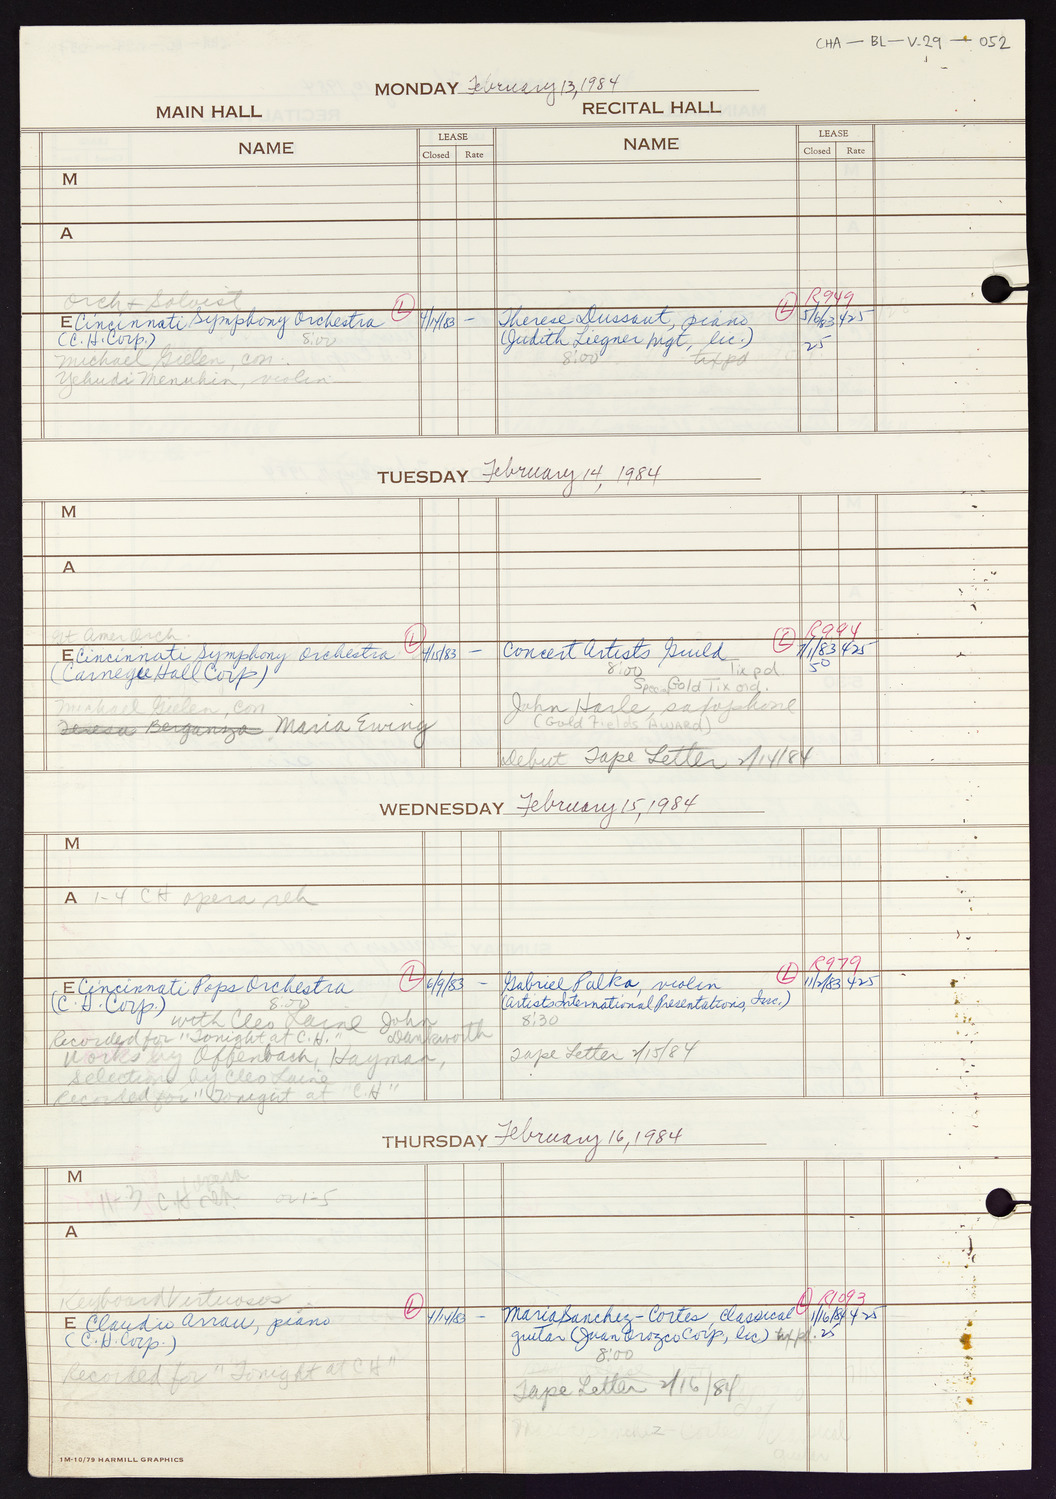 CHA — BL — V.29 — 052
MONDAY February 13, 1984
MAIN HALL RECITAL HALL
NAME LEASE NAME LEASE
Closed Rate Closed Rate
M
A
Orch + Soloist L L R949
E Cincinnati Symphony Orchestra 4/14/83 — Therese Dussaut, piano 5/6/83 425
(C.H. Corp.) 8:00 (Judith Liegner Mgt, lic.) 25
Michael Gielen, con. 8:00 tix pd
Yehudi Menuhin, violin
TUESDAY February 14, 1984
M
A
Gt Amer Orch. L L R994
E Cincinnati Symphony Orchestra 4/15/83 — Concert Artists Guild 7/1/83 425
(Carnegie Hall Corp) 8:00 Tix pd 50
Special Gold Tix ord.
Michael Gielen, con John Harle, saxophone
Teresa Berganza Maria Ewing (Gold Fields Award)
Debut Tape Letter 2/14/84
WEDNESDAY February 15, 1984
M
A 1-4 CH opera reh
L L R979
E Cincinnati Pops Orchestra 6/9/83 — Gabriel Palka, violin 11/2/83 425
(C.H. Corp.) 8:00 (Artists International Presentations, Inc.)
with Cleo Laine John Dankworth 8:30
Recorded for "Tonight at C.H."
Works by Offenbach, Hayman, Tape Letter 2/15/84
Selections by Cleo Laine
Recorded for "Tonight at "C.H"
THURSDAY February 16, 1984
M
11-3 C H reh or 1-5
A
Keyboard Virtuosos L L R1093
E Claudio Arrau, piano 1/14/83 — Maria Sanchez-Cortes, classical 1/16/84 425
(C.H. Corp.) guitar (Juan Orozco Corp, lic) tix pd. 25
8:00
Recorded for "Tonight at CH"
Tape Letter 2/16/84
1M-10/79 HARMILL GRAPHICS